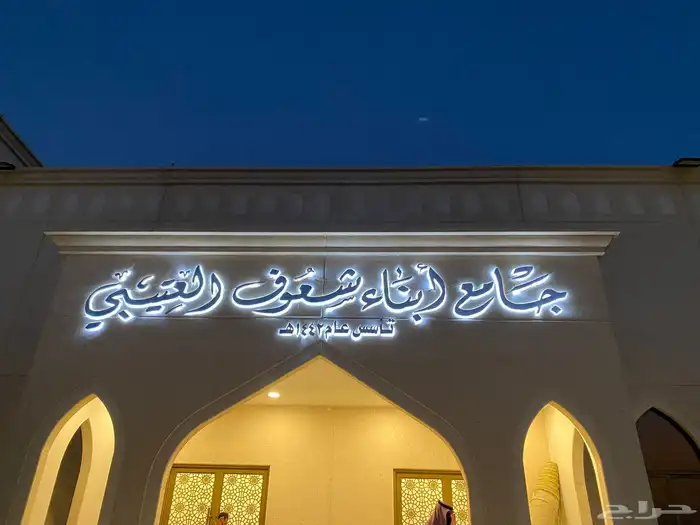 جامع أبناء شعوف العتيبي
تأسس عام ١٤٤٢هـ
حراج